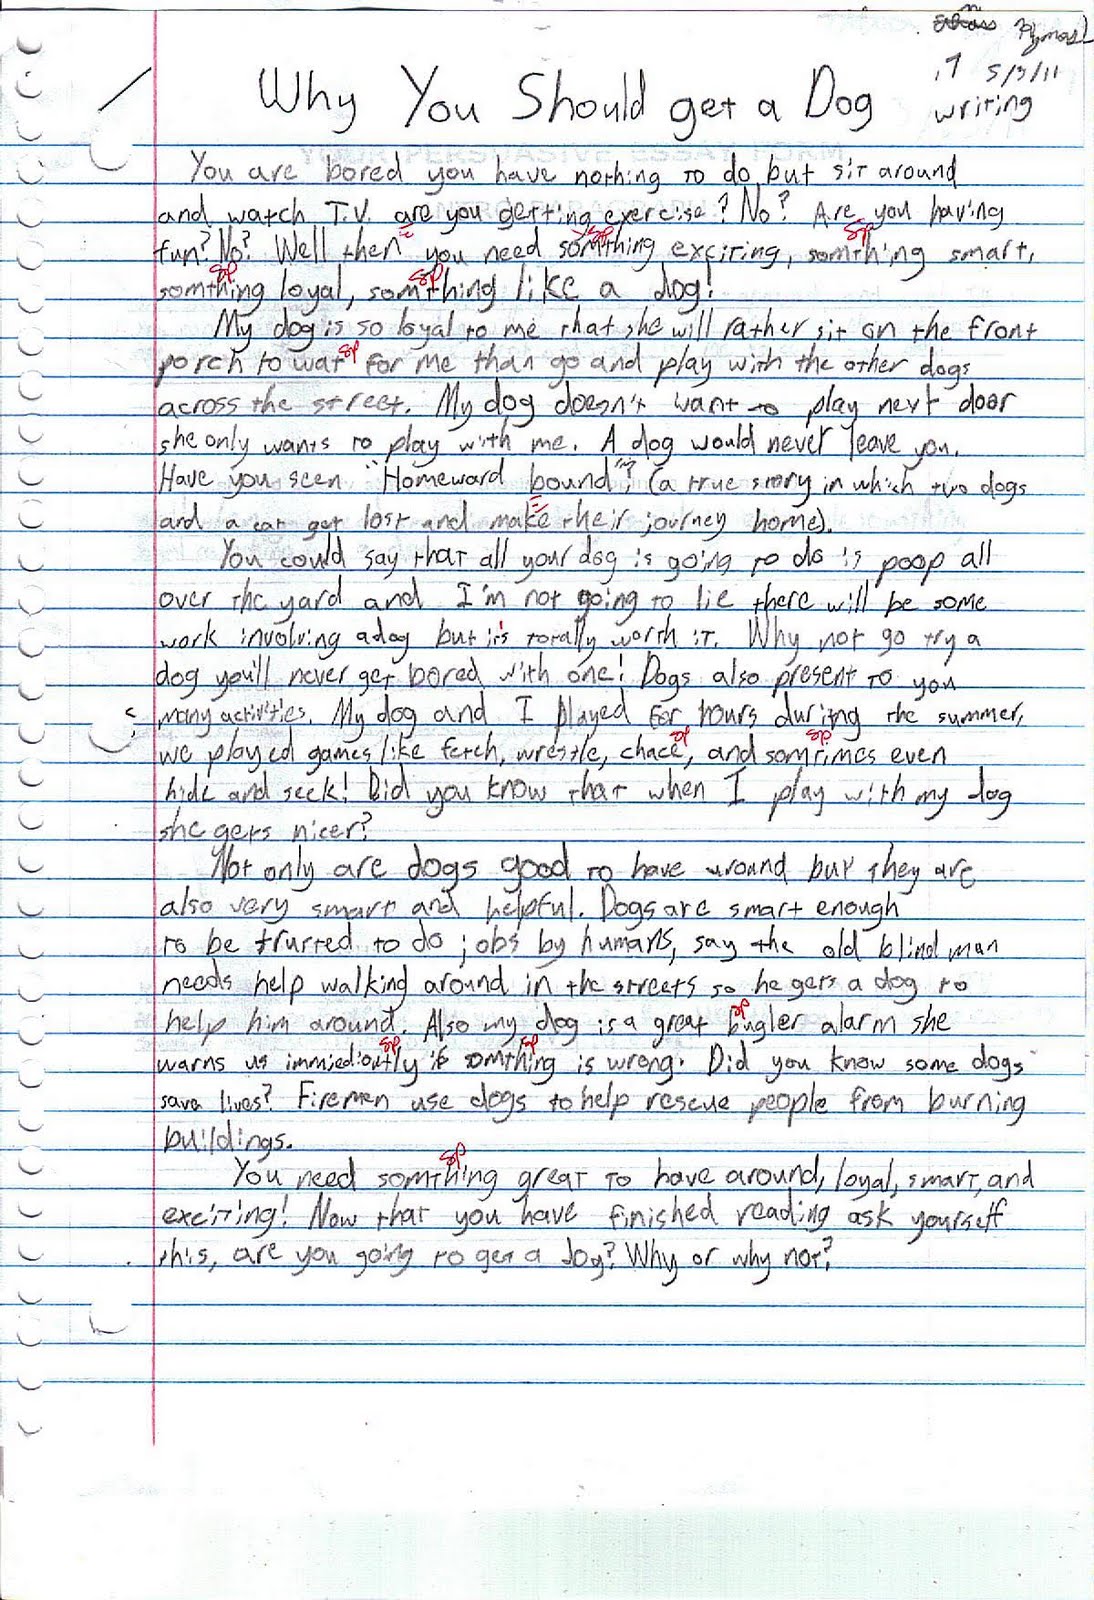 5/3/11
writing
Why You Should get a Dog
You are bored you have nothing to do but sit around
and watch T.V. are you getting exercise? No? Are you having
fun? No? Well then you need somthing exciting, somthing smart,
somthing loyal, somthing like a dog!
My dog is so loyal to me that she will rather sit on the front
porch to wat for me than go and play with the other dogs
across the street. My dog doesn't want to play next door
she only wants to play with me. A dog would never leave you.
Have you seen "Homeward bound"? (a true story in which two dogs
and a cat get lost and make their journey home).
You could say that all your dog is going to do is poop all
over the yard and I'm not going to lie there will be some
work involving a dog but it's totally worth it. Why not go try a
dog you'll never get bored with one! Dogs also present to you
many activities. My dog and I played for hours during the summer,
we played games like fetch, wrestle, chace, and somtimes even
hide and seek! Did you know that when I play with my dog
she gets nicer?
Not only are dogs good to have around but they are
also very smart and helpful. Dogs are smart enough
to be trurted to do jobs by humans, say the old blind man
needs help walking around in the streets so he gets a dog to
help him around. Also my dog is a great bugler alarm she
warns us immiediatly if somthing is wrong. Did you know some dogs
save lives? Firemen use dogs to help rescue people from burning
buildings.
You need somthing great to have around, loyal, smart, and
exciting! Now that you have finished reading ask yourself
this, are you going to get a dog? Why or why not?